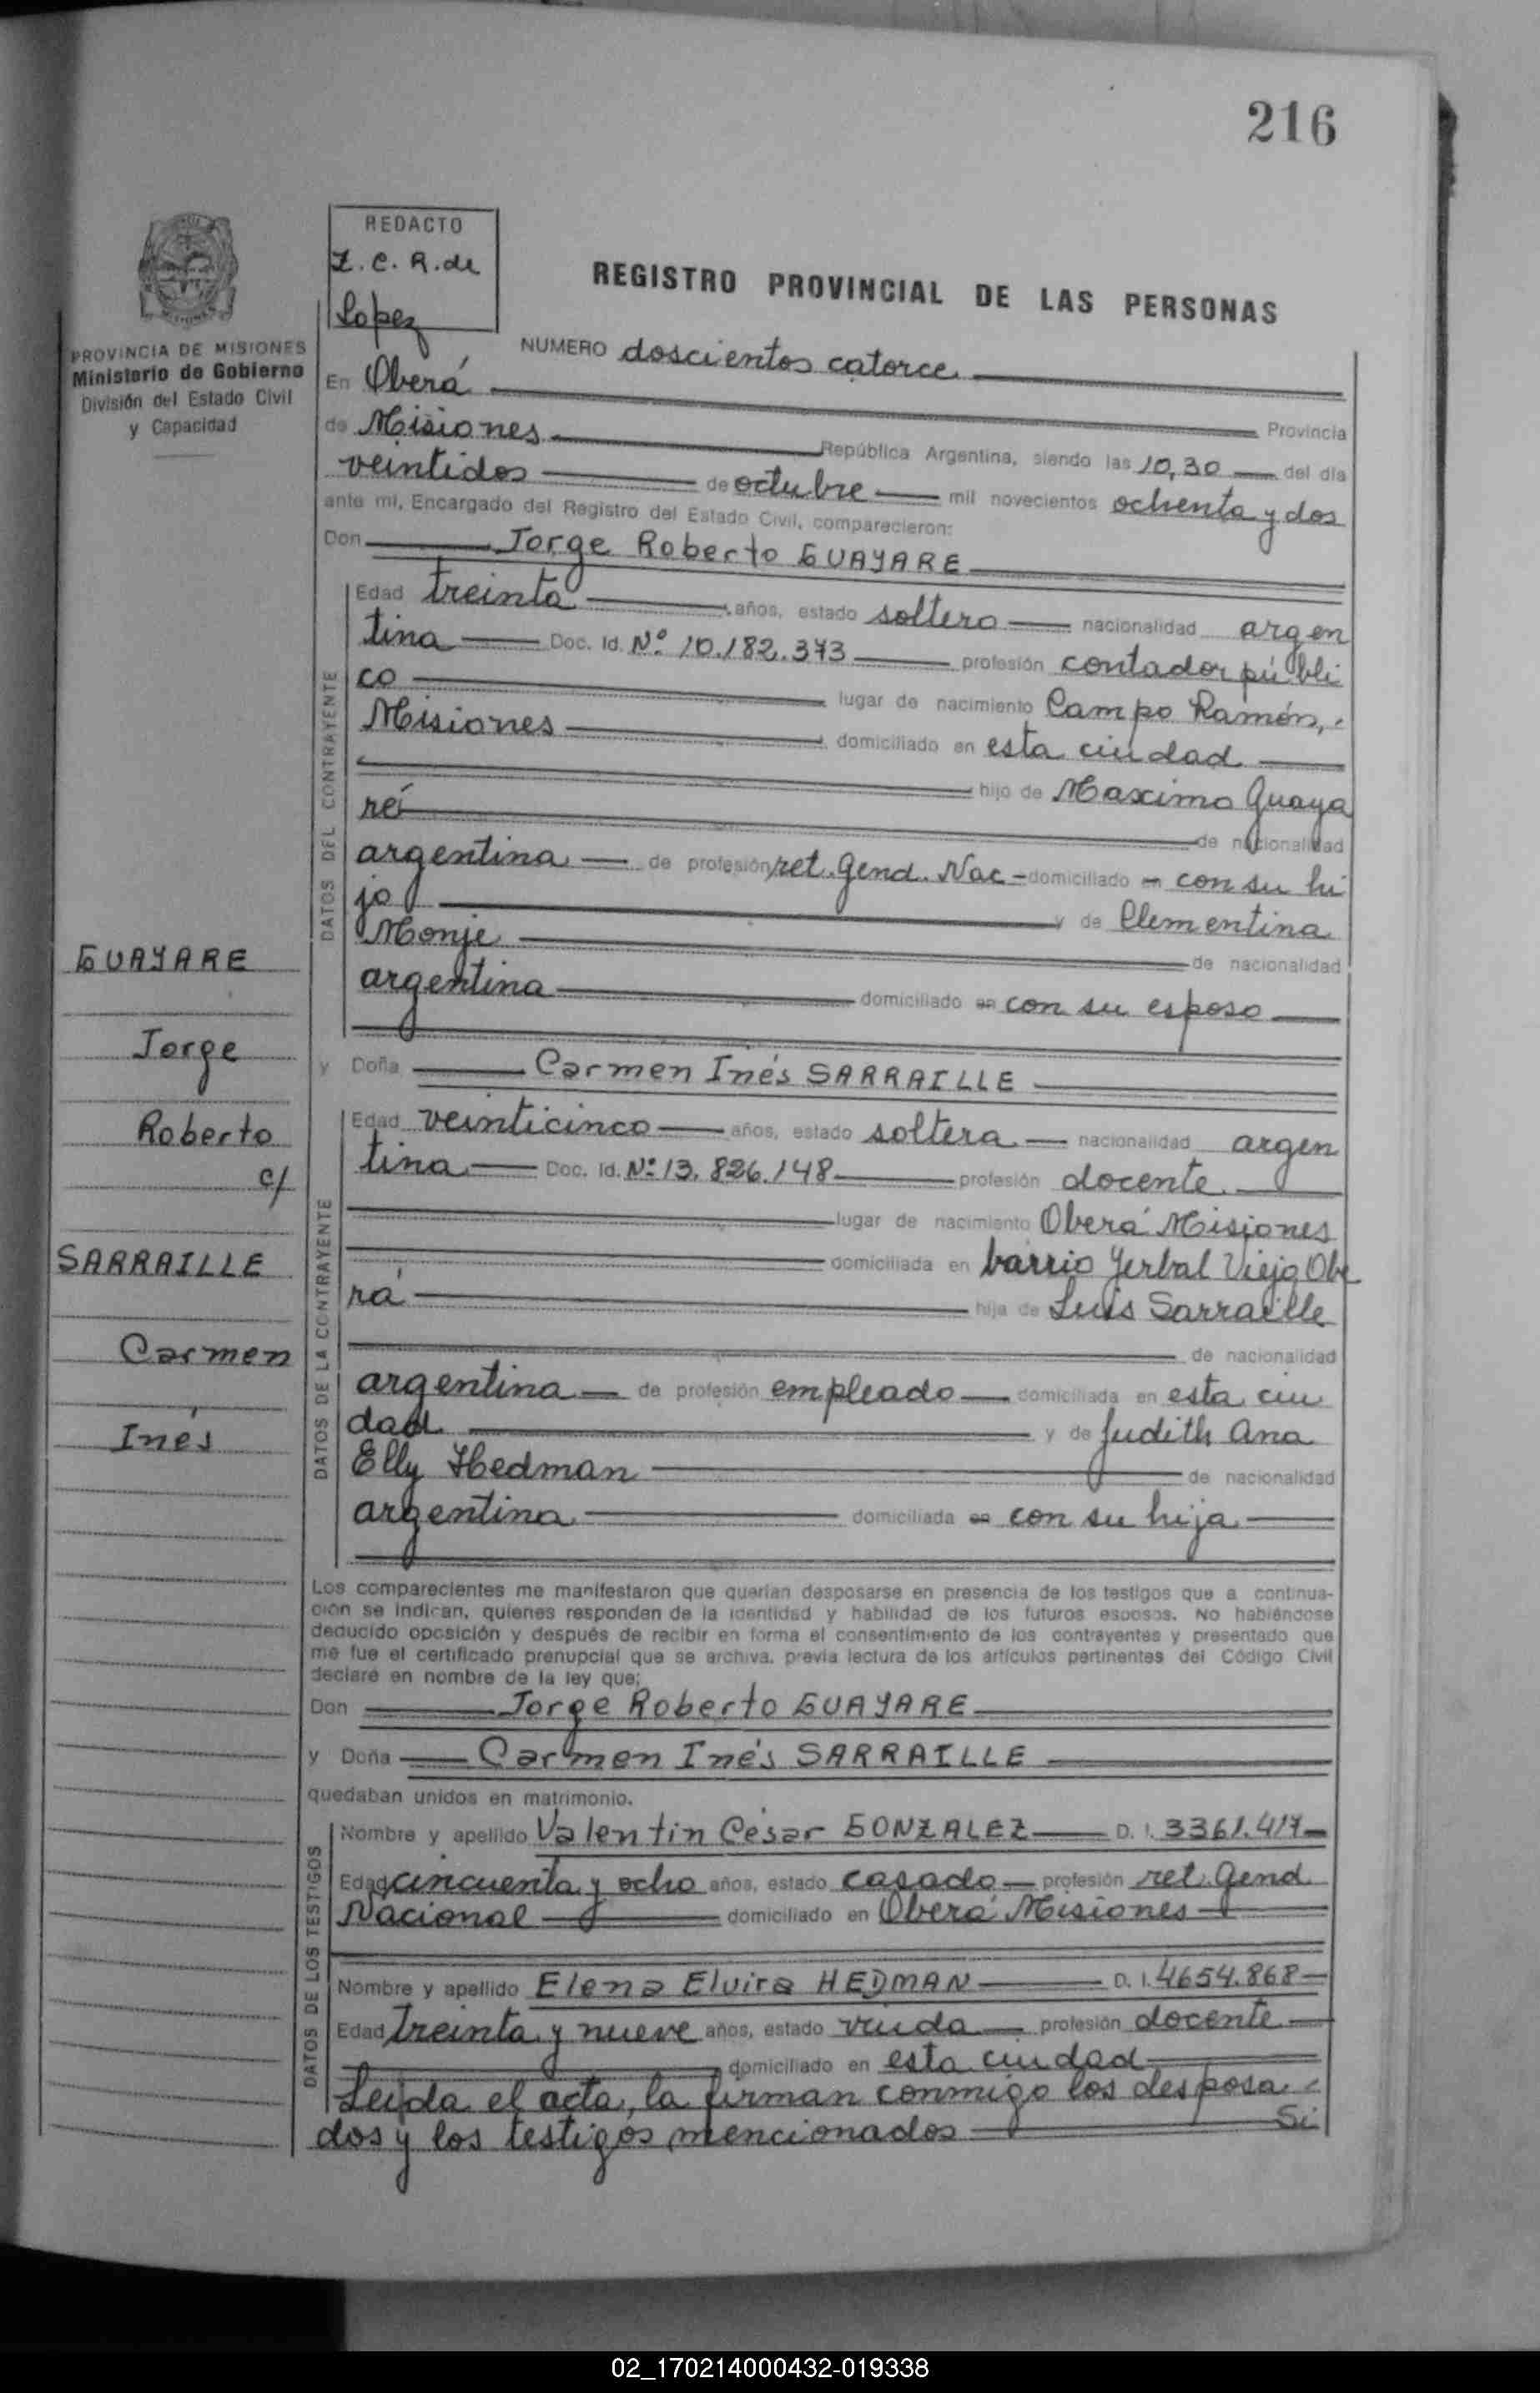 216
REDACTO
Z. C. R. de
Lopez
REGISTRO PROVINCIAL DE LAS PERSONAS
PROVINCIA DE MISIONES
Ministerio de Gobierno
División del Estado Civil
y Capacidad
NUMERO doscientos catorce
En Oberá Provincia
de Misiones República Argentina, siendo las 10,30 del día
veintidos de octubre mil novecientos ochenta y dos
ante mi, Encargado del Registro del Estado Civil, comparecieron:
Don Jorge Roberto GUAYARE
DATOS DEL CONTRAYENTE
Edad treinta años, estado soltero nacionalidad argen
tina Doc. Id. Nº 10.182.373 profesión contador públi
co lugar de nacimiento Campo Ramón,
Misiones domiciliado en esta ciudad
hijo de Maximo Guaya
ré de nacionalidad
argentina de profesión ret. Gend. Nac - domiciliado en con su hi
jo y de Clementina
Monje de nacionalidad
argentina domiciliado en con su esposo
y Doña Carmen Inés SARRAILLE
DATOS DE LA CONTRAYENTE
Edad veinticinco años, estado soltera nacionalidad argen
tina Doc. Id. Nº 13.826.148 profesión docente
lugar de nacimiento Oberá Misiones
domiciliada en barrio Yerbal Viejo Obe
rá hija de Luis Sarraille
de nacionalidad
argentina de profesión empleado domiciliada en esta ciu
dad y de Judith Ana
Elly Hedman de nacionalidad
argentina domiciliada en con su hija
GUAYARE
Jorge
Roberto
c/
SARRAILLE
Carmen
Inés
Los comparecientes me manifestaron que querían desposarse en presencia de los testigos que a continua-
ción se indican, quienes responden de la identidad y habilidad de los futuros esposos. No habiéndose
deducido oposición y después de recibir en forma el consentimiento de los contrayentes y presentado que
me fue el certificado prenupcial que se archiva, previa lectura de los artículos pertinentes del Código Civil
declaré en nombre de la ley que:
Don Jorge Roberto GUAYARE
y Doña Carmen Inés SARRAILLE
quedaban unidos en matrimonio.
DATOS DE LOS TESTIGOS
Nombre y apellido Valentin César GONZALEZ D. I. 3361.417
Edad cincuenta y ocho años, estado casado profesión ret. Gend.
Nacional domiciliado en Oberá Misiones
Nombre y apellido Elena Elvira HEDMAN D. I. 4654.868
Edad treinta y nueve años, estado viuda profesión docente
domiciliado en esta ciudad
Leída el acta, la firman conmigo los desposa
dos y los testigos mencionados Si
02_170214000432-019338